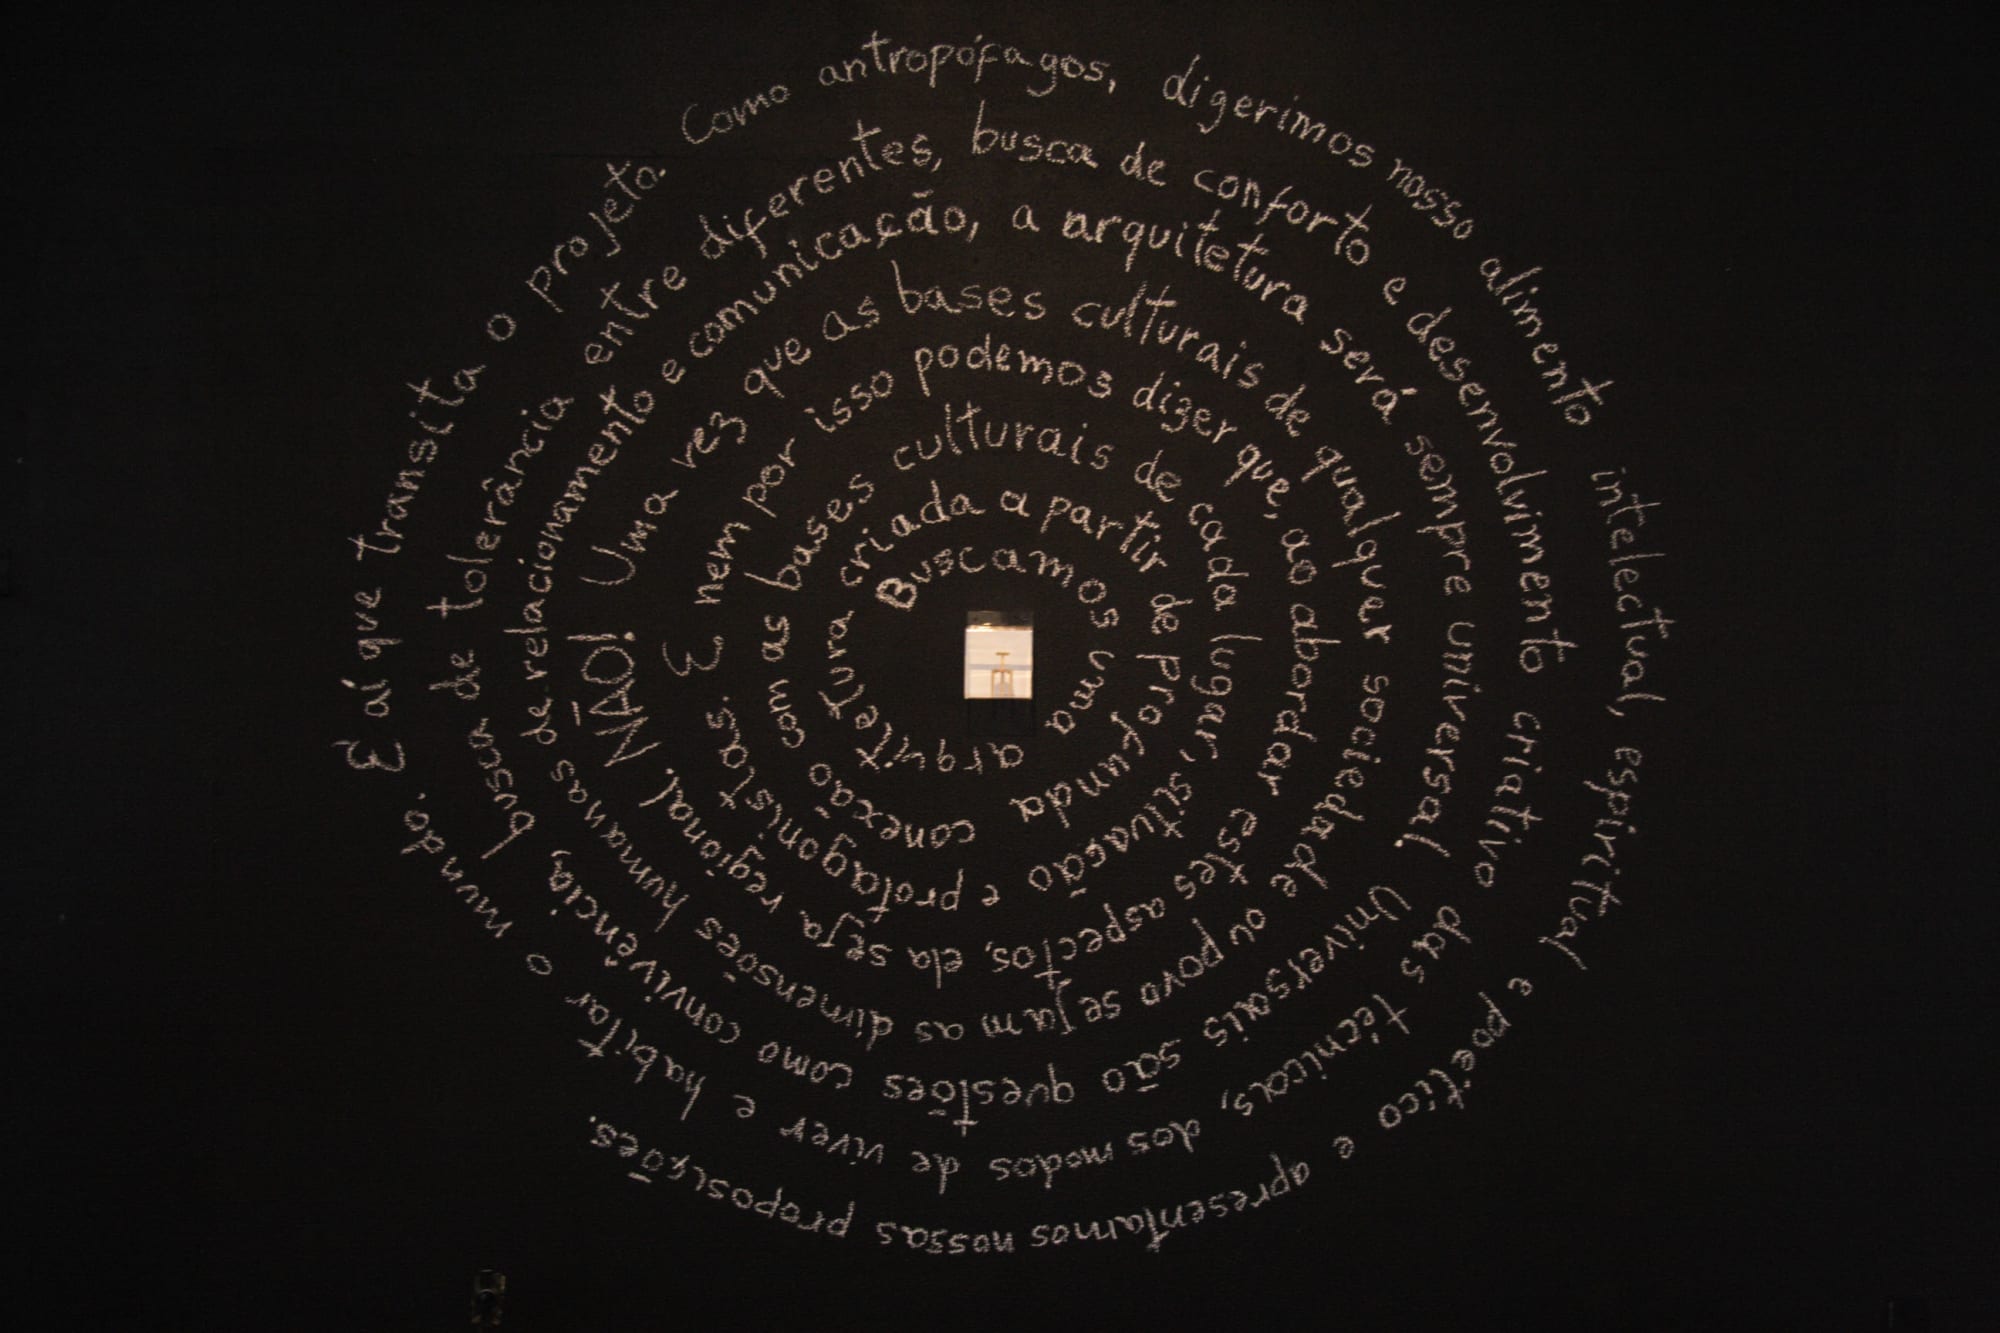 Buscamos uma arquitetura
criada a partir de profunda conexão
com as bases culturais de cada lugar, situação e protagonistas.
E nem por isso podemos dizer que, ao abordar estes aspectos, ela seja regional.
NÃO! Uma vez que as bases culturais de qualquer sociedade ou povo sejam as dimensões humanas
de relacionamento e comunicação, a arquitetura será sempre universal. Universais são questões como convivência,
busca de tolerância entre diferentes, busca de conforto e desenvolvimento criativo das técnicas, dos modos de viver e habitar o mundo.
E aí que transita o projeto. Como antropófagos, digerimos nosso alimento intelectual, espiritual e poético e apresentamos nossas proposições.